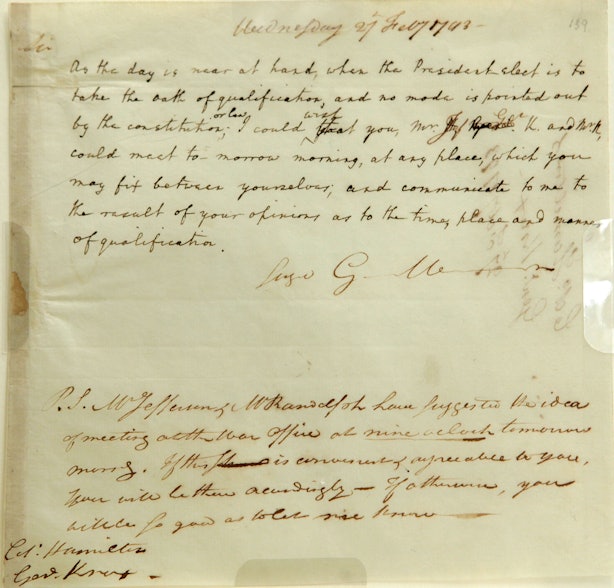 Wednesday 27 Feby 1793 —
139
Sir
As the day is near at hand, when the President-elect is to
take the oath of qualification, and no mode is pointed out
by the constitution; I could
or law
wish
you, Mr K. and Mr R,
could meet to-morrow morning, at any place, which you
may fix between yourselves; and communicate to me to
the result of your opinions as to the time, place and manner
of qualification.
G.
P.S. Mr Jefferson & Mr Randolph have suggested the idea
of meeting at the War Office at nine oclock tomorrow
morng. If this is convenient & agreeable to you,
you will be there accordingly — If otherwise, you
will be so good as to let me know —
Col. Hamilton
Genl. Knox —